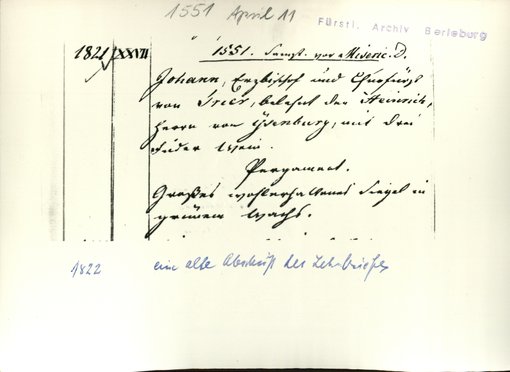 1551 April 11
Fürstl. Archiv Berleburg
1821 XXVII 1551. Samst. vor Miseric. D.
Johann, Erzbischof und Churfürst
von Trier, belehnt den Heinrich,
Herrn von Ysenburg, mit drei
Fuder Wein.
Pergament.
Großes wohlerhaltenes Siegel in
grünem Wachs.
1822 eine alte Abschrift des Lehnbriefes